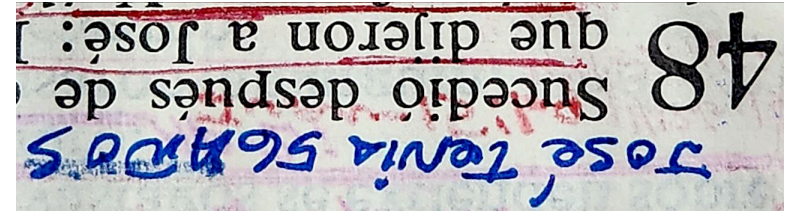 José Tenía 56 AÑOS
48 Sucedió después de
que dijeron a José: